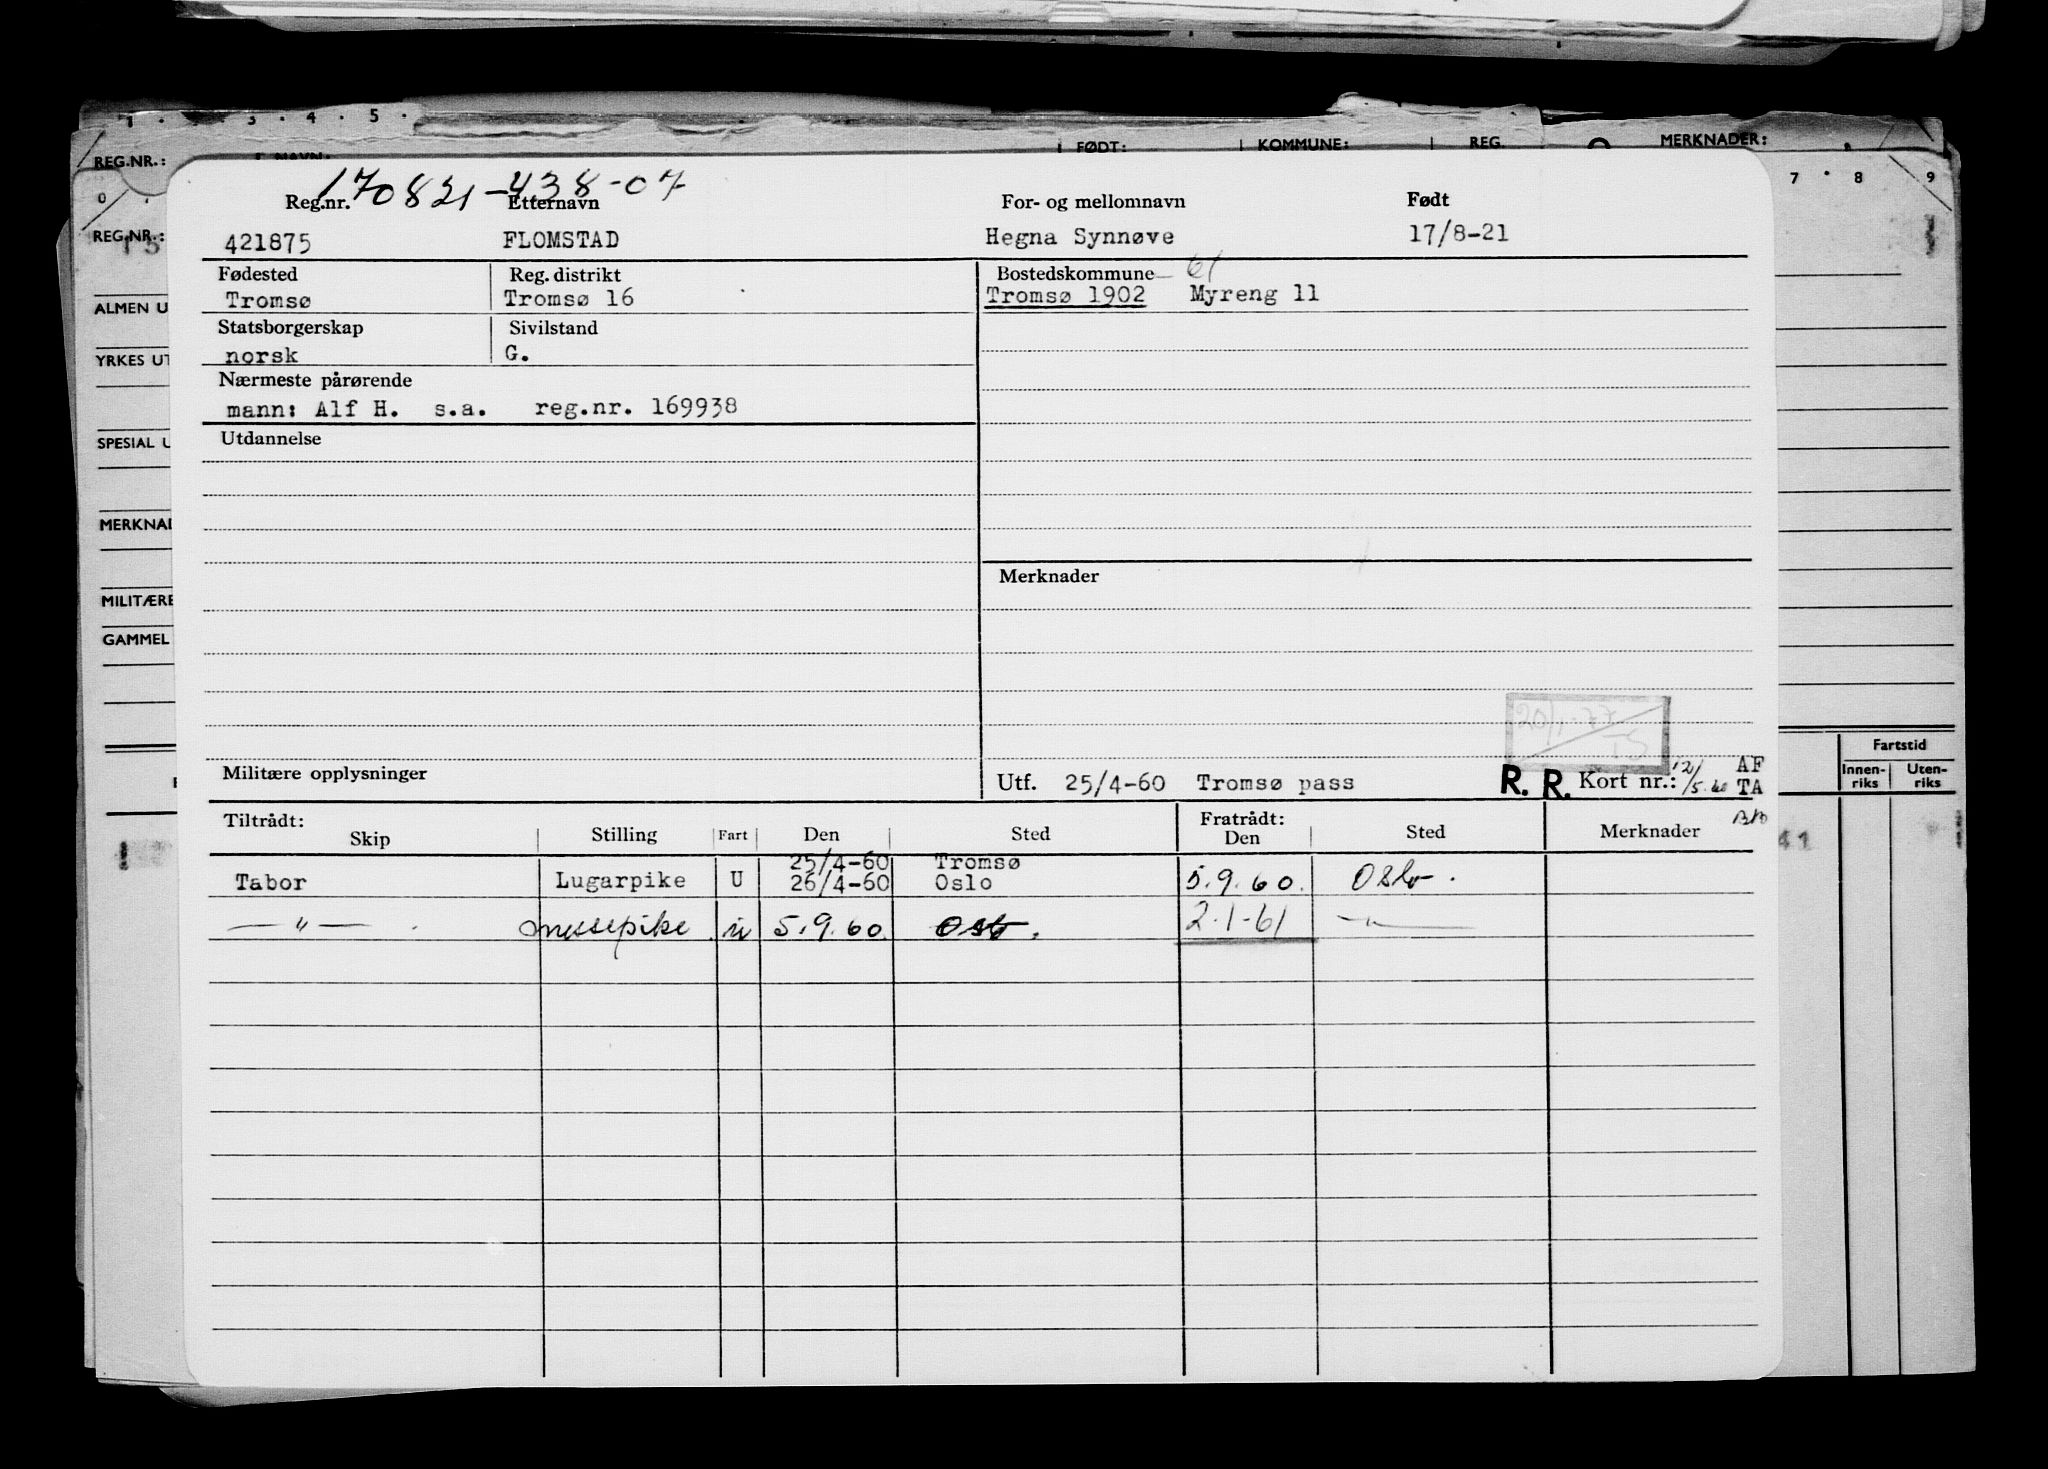 1 . 3 . 4 . 5 .
REG.NR.: FØDT: KOMMUNE: REG. MERKNADER:
0 7 . 8 . 9
170821-438-07
Reg.nr. Etternavn For- og mellomnavn Født
REG.NR.: 421875 FLOMSTAD Hegna Synnøve 17/8-21
Fødested Reg. distrikt Bostedskommune - 61
Tromsø Tromsø 16 Tromsø 1902 Myreng 11
ALMEN U
Statsborgerskap Sivilstand
norsk G.
YRKES UT
Nærmeste pårørende
mann: Alf H. s.a. reg.nr. 169938
Utdannelse
SPESIAL U
MERKNAD
Merknader
MILITÆRE
GAMMEL
20/1-77
TS
Fartstid
Innen-riks Uten-riks
Militære opplysninger Utf. 25/4-60 Tromsø pass R. R. Kort nr.: 12/5.60 AF
TA
Tiltrådt: Fratrådt:
Skip Stilling Fart Den Sted Den Sted Merknader
25/4-60 Tromsø
Tabor Lugarpike U 26/4-60 Oslo 5.9.60. Oslo.
—"— messepike u 5.9.60 Oslo. 2.1-61 —"—
41